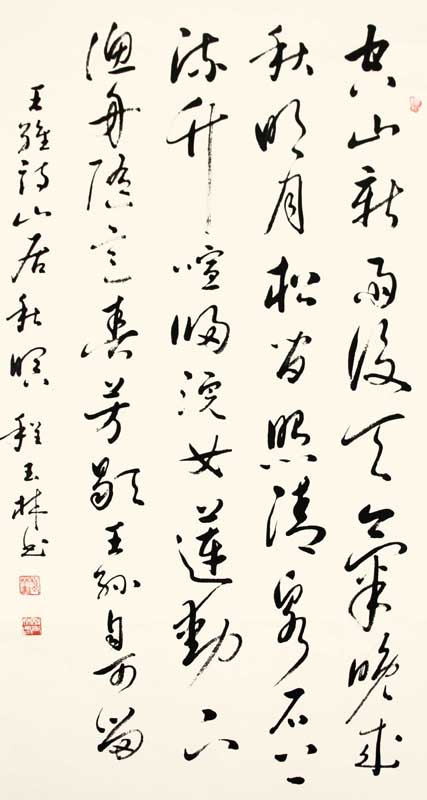 空山新雨後天氣晚来
秋明月松間照清泉石上
流竹喧歸浣女蓮動下
漁舟隨意春芳歇王孫自可留
王維詩山居秋暝 程玉林书